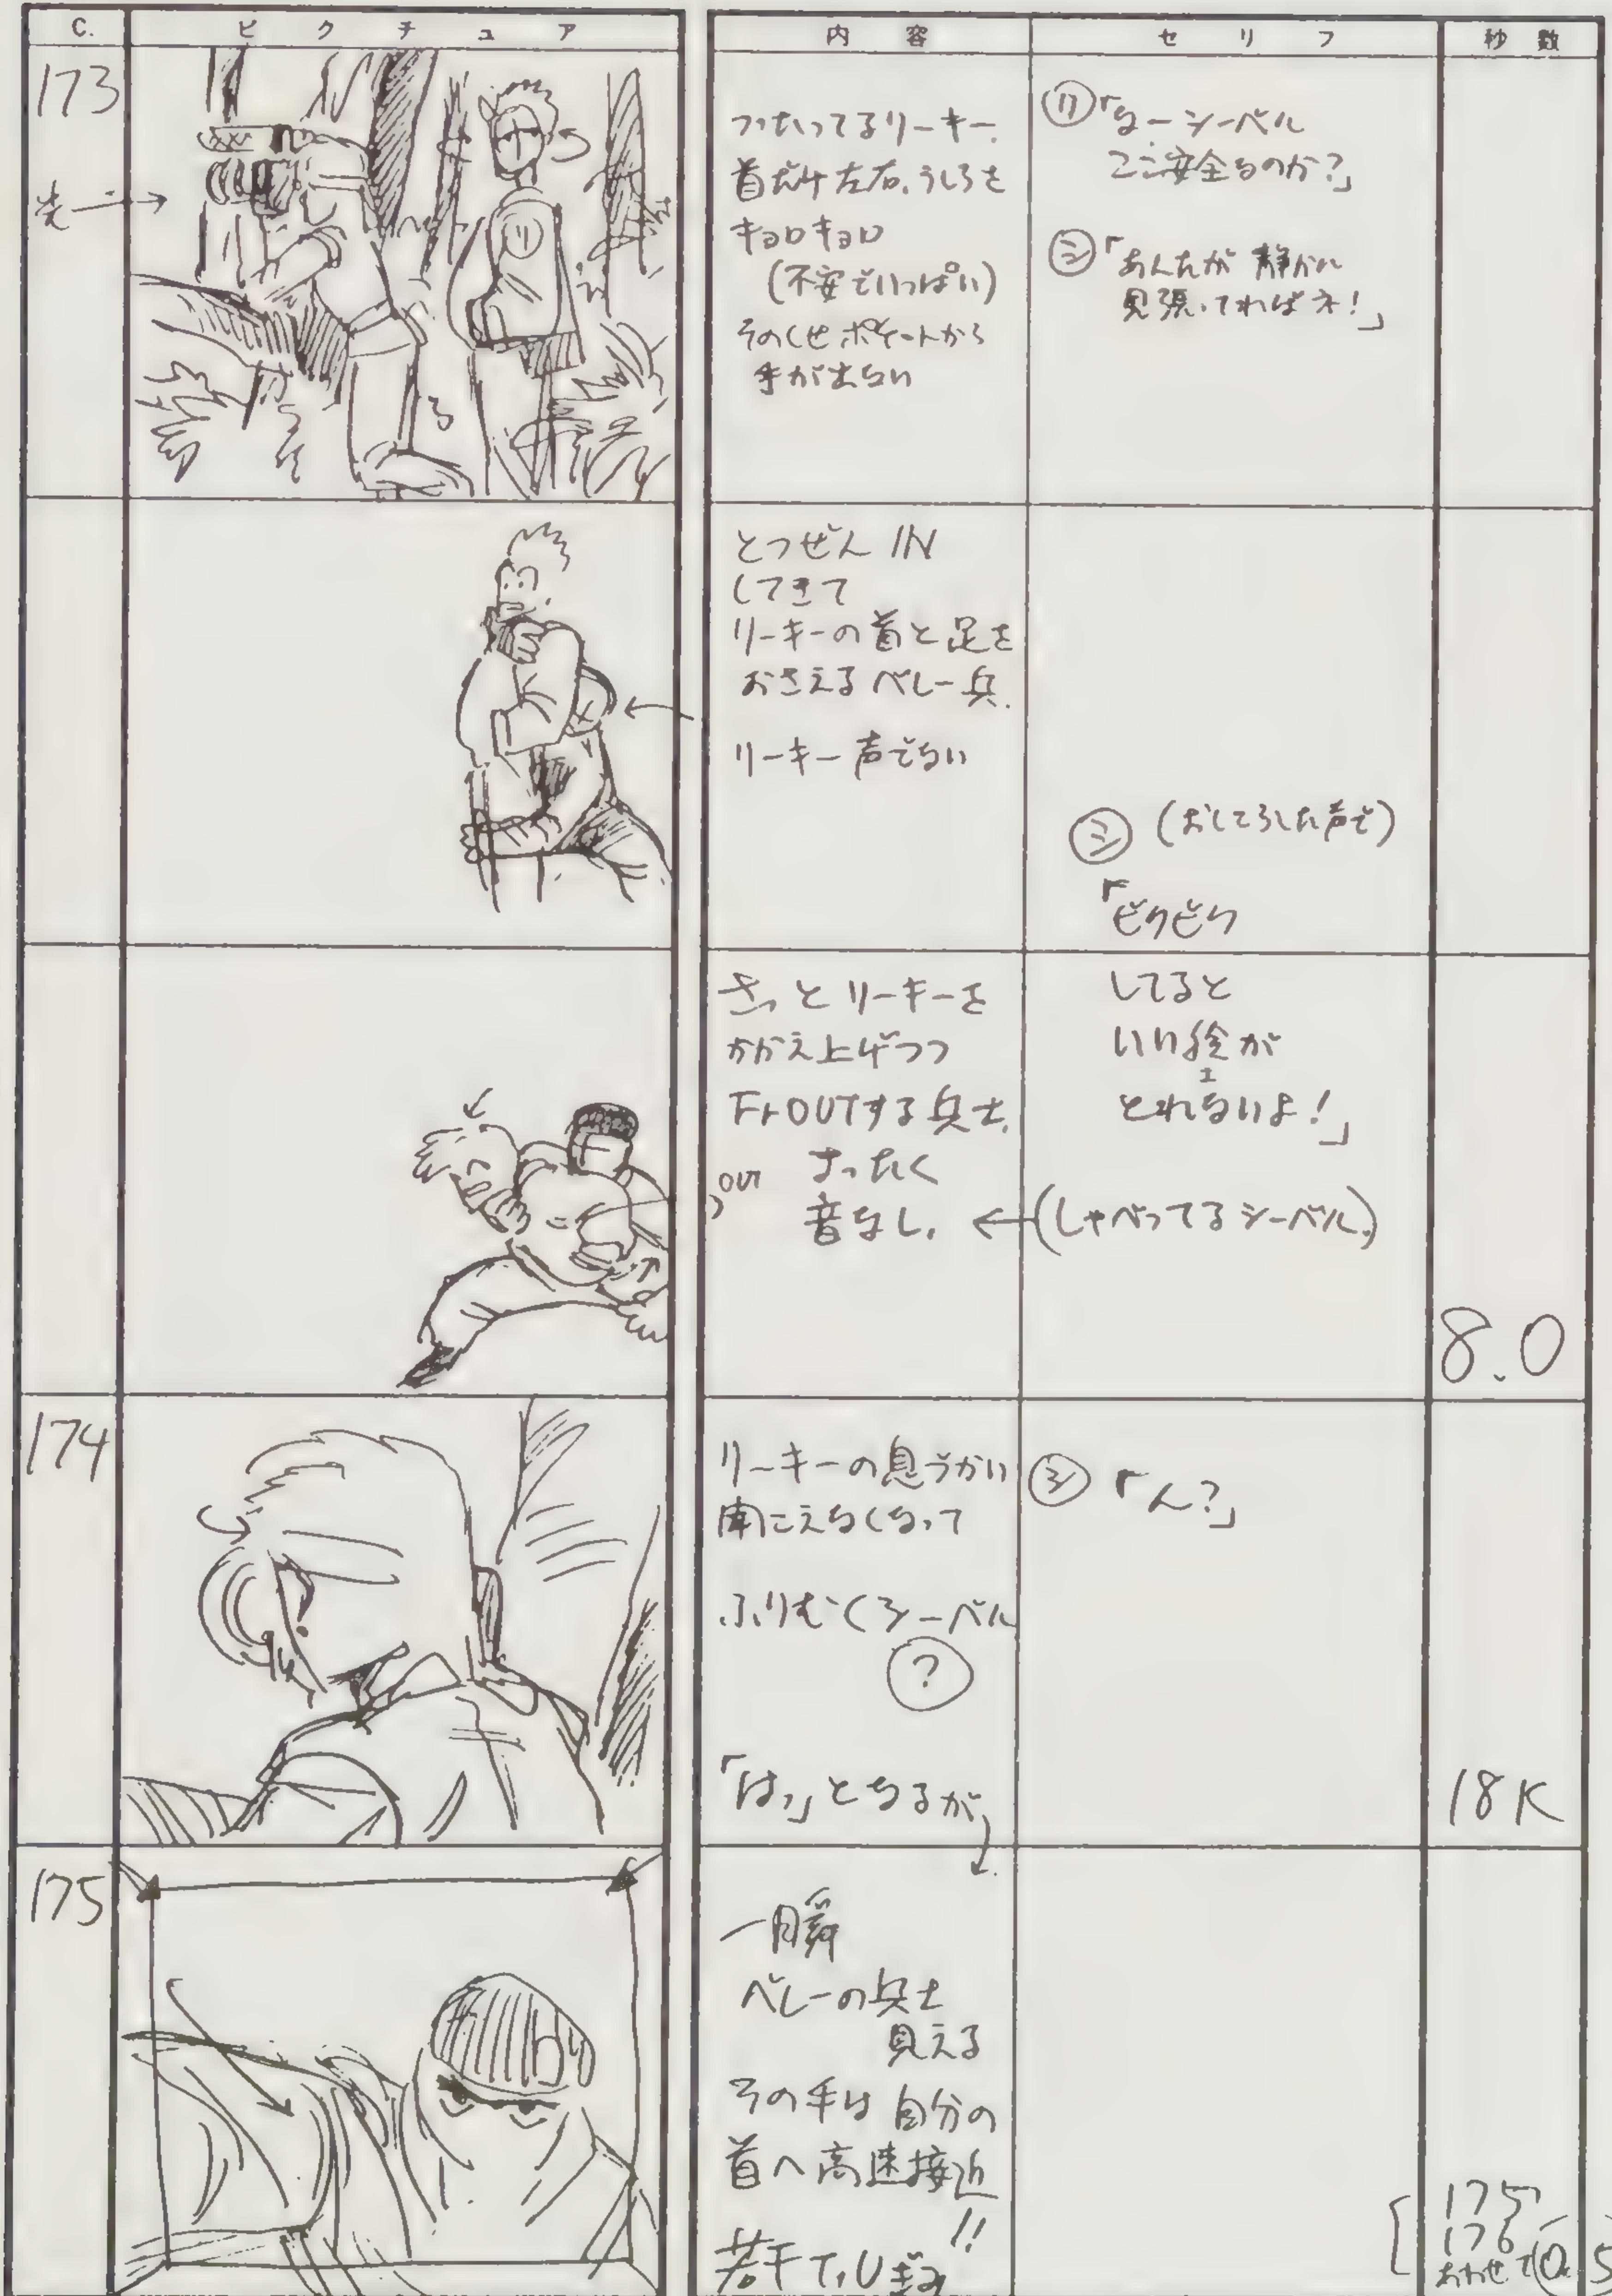 C.
ピクチュア
内容
セリフ
秒数
173
つったってるリーキー.
首だけ左右、うしろを
キョロキョロ
(不安でいっぱい)
そのくせポケットから
手が出ない
リ「なーシーベル
ここ安全なのか?」
シ「あんたが静かに
見張ってればネ!」
リ
とつぜんIN
してきて
リーキーの首と足を
おさえるベレー兵.
リーキー声でない
シ (おしころした声で)
「ビクビク
さっとリーキーを
かかえ上げつつ
Fr OUTする兵士.
OUT
まったく
音なし.
してると
いい絵が
エ
とれないよ!」
←(しゃべってるシーベル.)
8.0
174
リーキーの息づかい
聞こえなくなって
ふりむくシーベル
?
「はっ」となるが
シ「ん?」
18K
175
一瞬
ベレーの兵士
見える
その手は自分の
首へ高速接近
!!
若干T.Uぎみ
175
176
あわせて